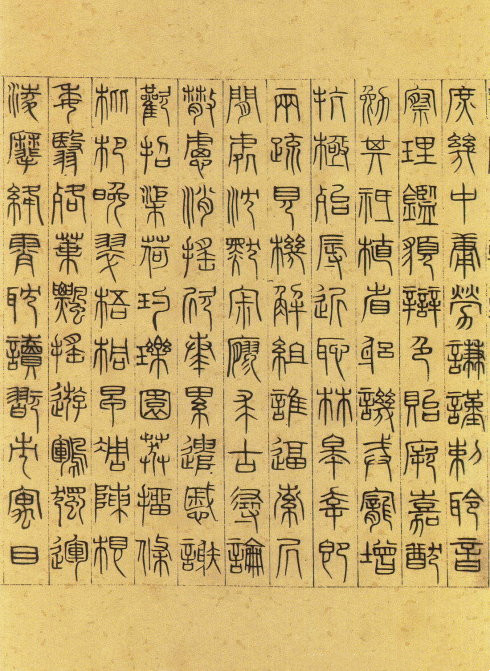 庶幾中庸勞謙謹敕聆音
察理鑑貌辯色貽厥嘉猷
勉其祗植省躬譏戒寵增
抗極殆辱近恥林皋幸即
兩疏見機解組誰逼索居
閒處沈默寂寥求古尋論
散慮消搖欣奏累遣慼謝
歡招渠荷玓瓅園莽抽條
枇杷晚翠梧桐早凋陳根
委翳落葉飄搖遊鵾獨運
淩摩絳霄耽讀翫市寓目